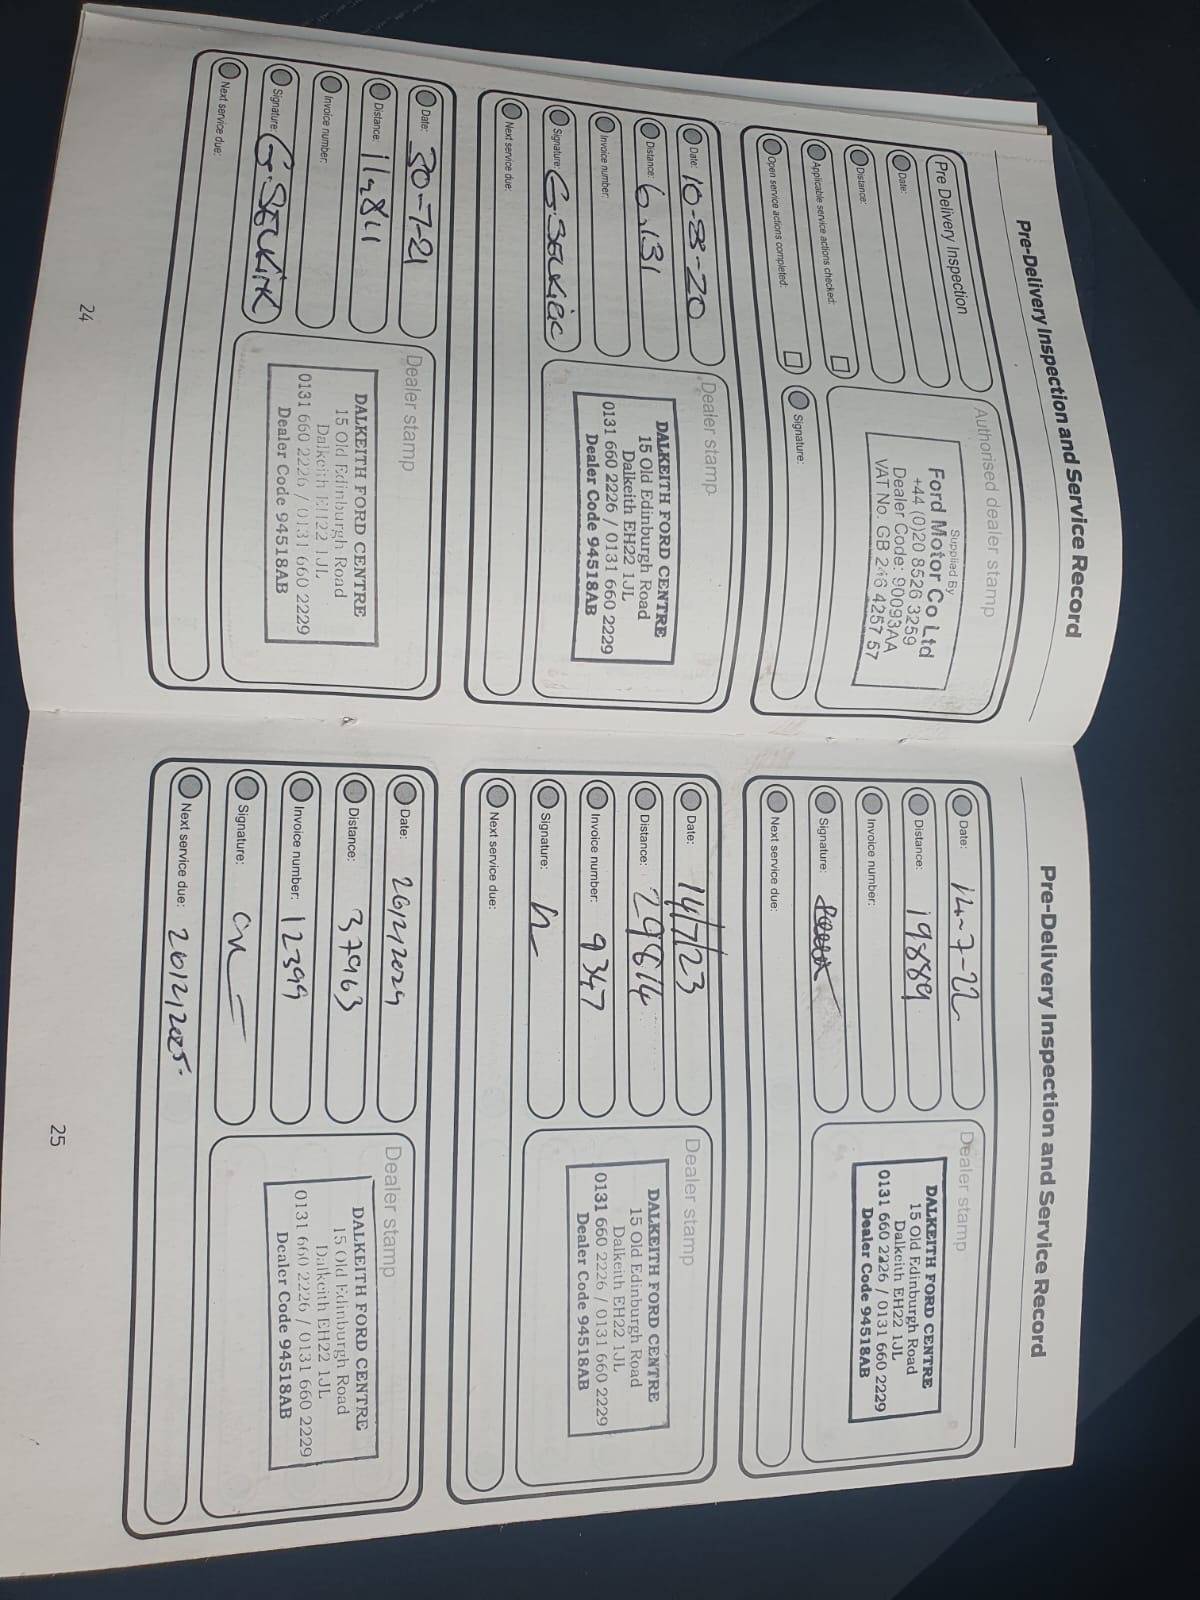 Pre-Delivery Inspection and Service Record
Pre Delivery Inspection
Date:
Distance:
Applicable service actions checked:
Open service actions completed:
Authorised dealer stamp
Supplied By
Ford Motor Co Ltd
+44 (0)20 8526 3259
Dealer Code: 90093AA
VAT No. GB 246 4257 57
Signature:
Date: 10-8-20
Distance: 6,131
Invoice number:
Signature:
Next service due:
Dealer stamp
DALKEITH FORD CENTRE
15 Old Edinburgh Road
Dalkeith EH22 1JL
0131 660 2226 / 0131 660 2229
Dealer Code 94518AB
Date: 30-7-21
Distance:
Invoice number:
Signature:
Next service due:
Dealer stamp
DALKEITH FORD CENTRE
15 Old Edinburgh Road
Dalkeith EH22 1JL
0131 660 2226 / 0131 660 2229
Dealer Code 94518AB
24
Pre-Delivery Inspection and Service Record
Date: 14-7-22
Distance: 19889
Invoice number:
Signature:
Next service due:
Dealer stamp
DALKEITH FORD CENTRE
15 Old Edinburgh Road
Dalkeith EH22 1JL
0131 660 2226 / 0131 660 2229
Dealer Code 94518AB
Date: 14/7/23
Distance: 29814
Invoice number: 9347
Signature:
Next service due:
Dealer stamp
DALKEITH FORD CENTRE
15 Old Edinburgh Road
Dalkeith EH22 1JL
0131 660 2226 / 0131 660 2229
Dealer Code 94518AB
Date:
Distance: 37963
Invoice number: 12399
Signature:
Next service due:
Dealer stamp
DALKEITH FORD CENTRE
15 Old Edinburgh Road
Dalkeith EH22 1JL
0131 660 2226 / 0131 660 2229
Dealer Code 94518AB
25